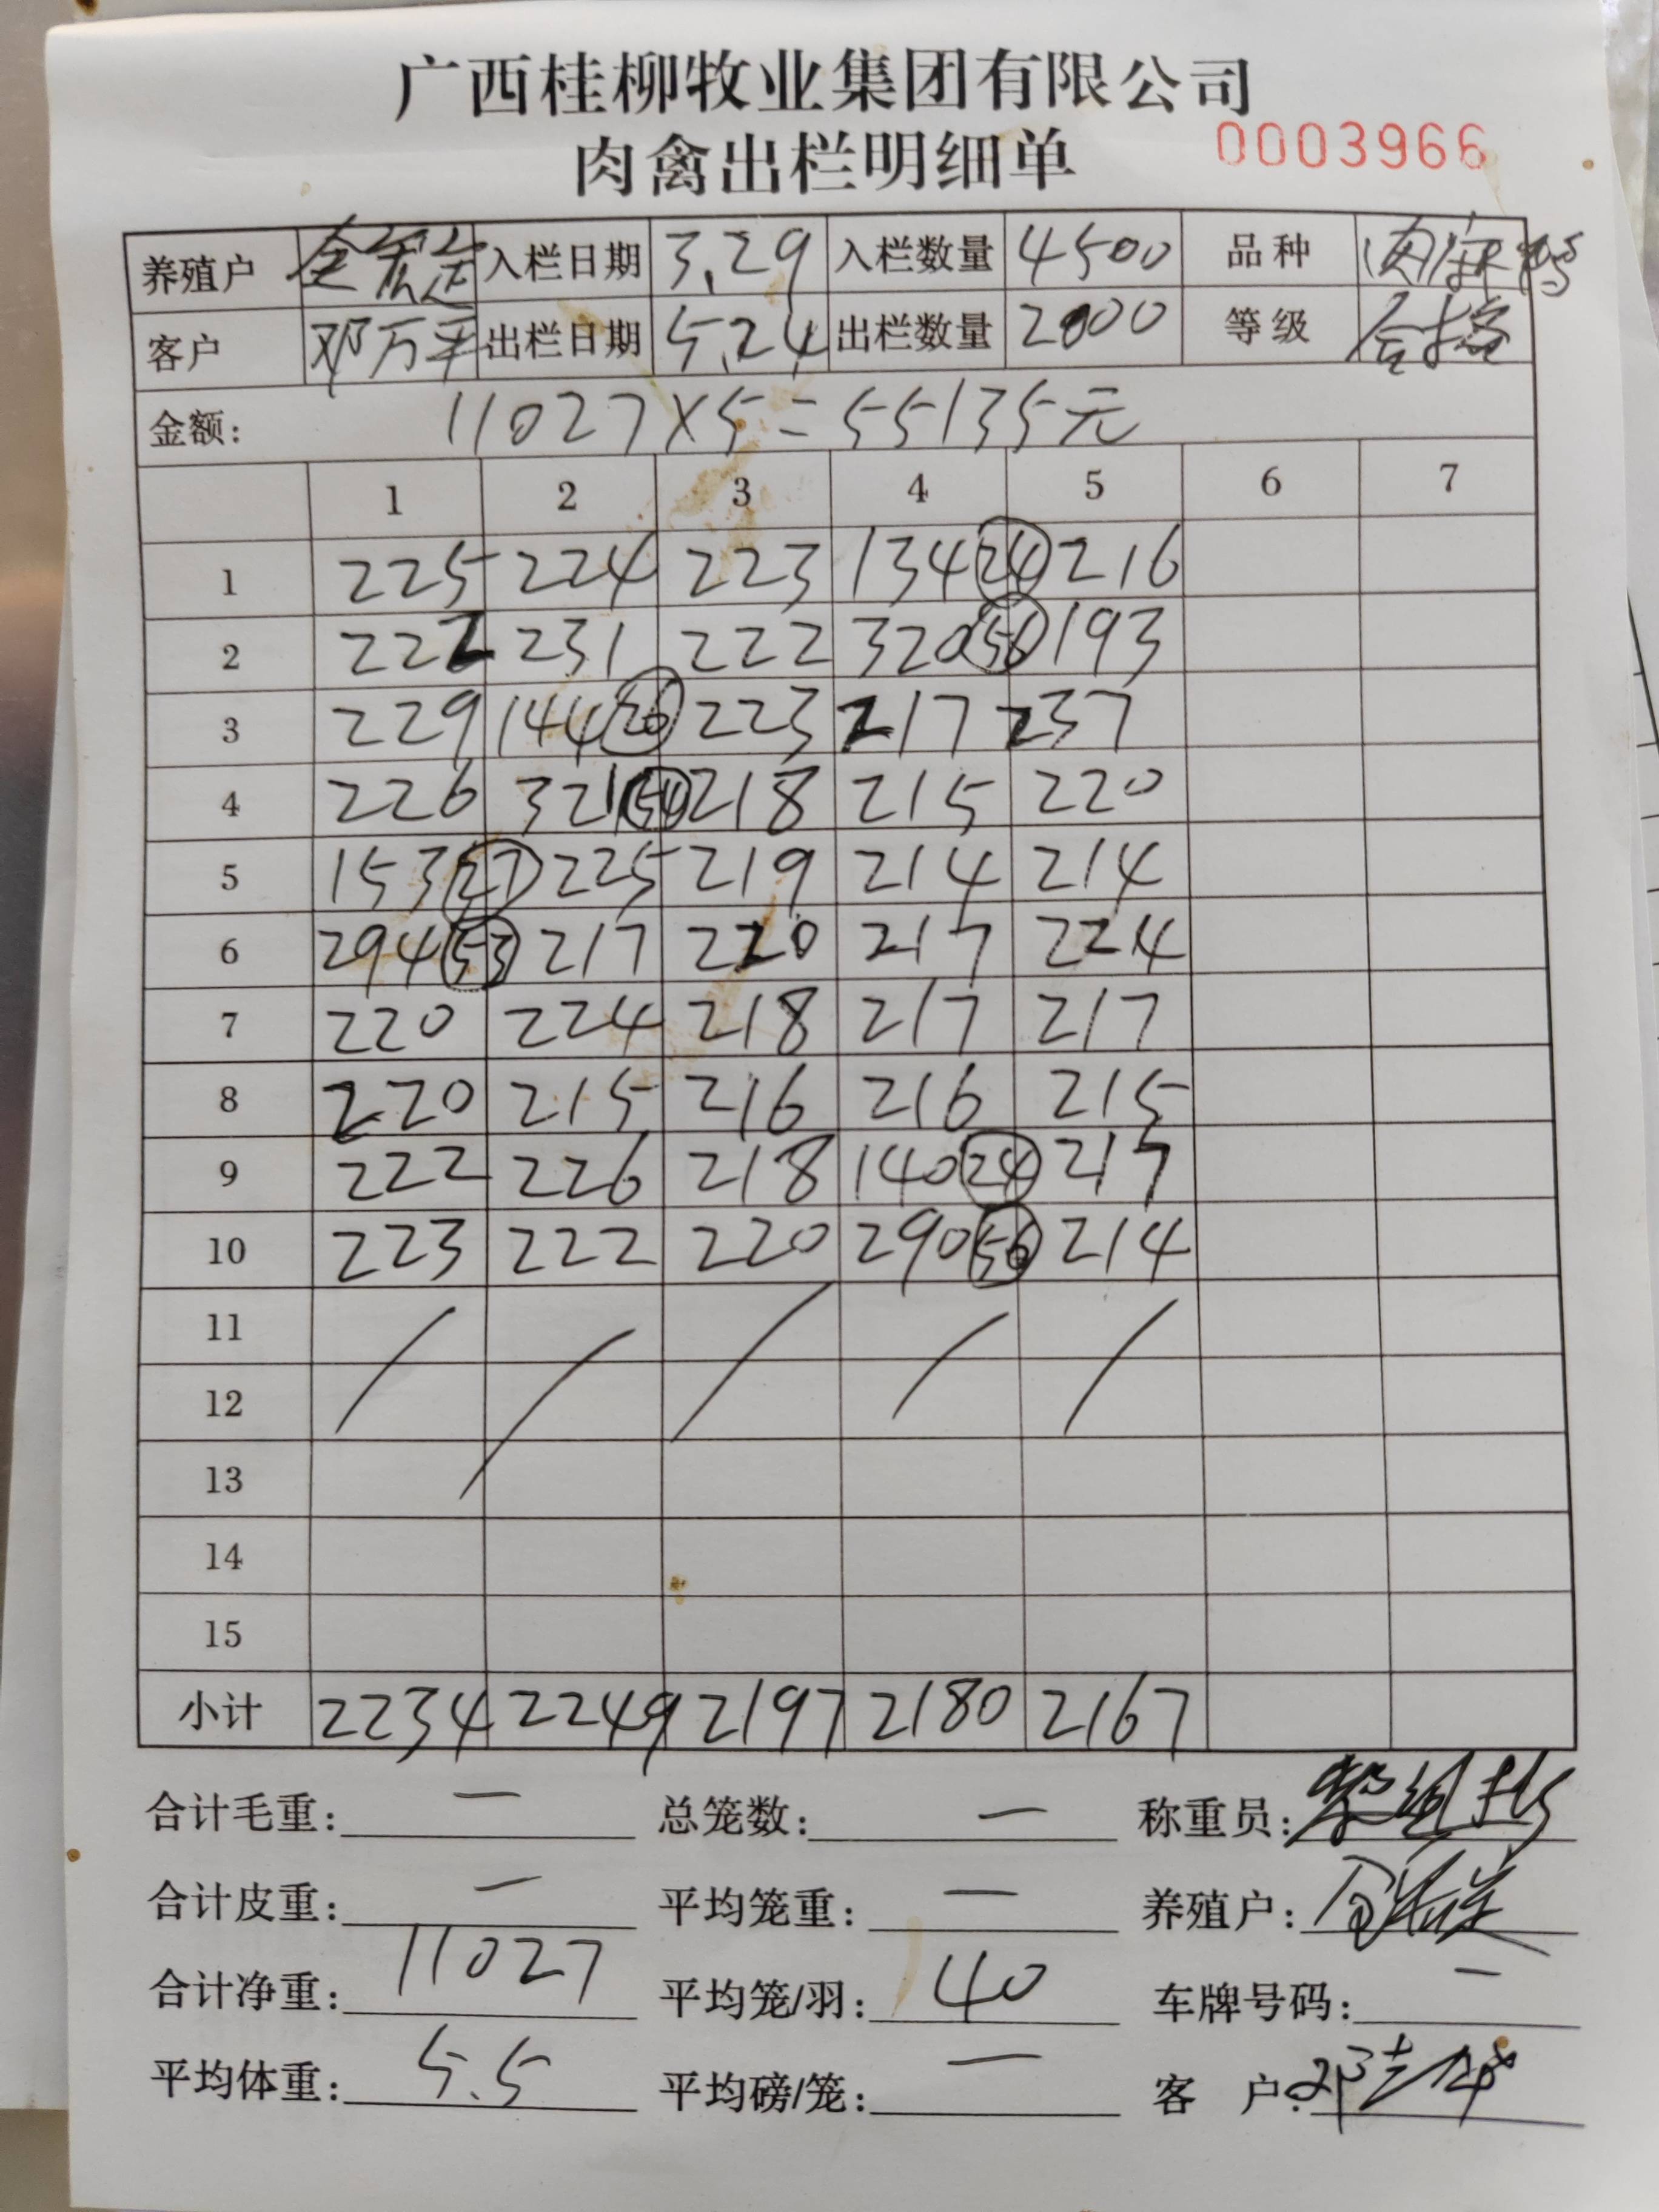 广西桂柳牧业集团有限公司
肉禽出栏明细单 0003966
养殖户 入栏日期 3.29 入栏数量 4500 品种
客户 邓万平 出栏日期 5.24 出栏数量 2000 等级 合格
金额: 11027×5=55135元
1 2 3 4 5 6 7
1 225 224 223 134 24 216
2 222 231 222 320 56 193
3 229 144 26 223 217 237
4 226 321 54 218 215 220
5 153 27 225 219 214 214
6 294 53 217 220 217 224
7 220 224 218 217 217
8 220 215 216 216 215
9 222 226 218 140 24 217
10 223 222 220 290 56 214
11
12
13
14
15
小计 2234 2249 2197 2180 2167
合计毛重: — 总笼数: — 称重员:
合计皮重: — 平均笼重: — 养殖户:
合计净重: 11027 平均笼/羽: 40 车牌号码: —
平均体重: 5.5 平均磅/笼: — 客 户: